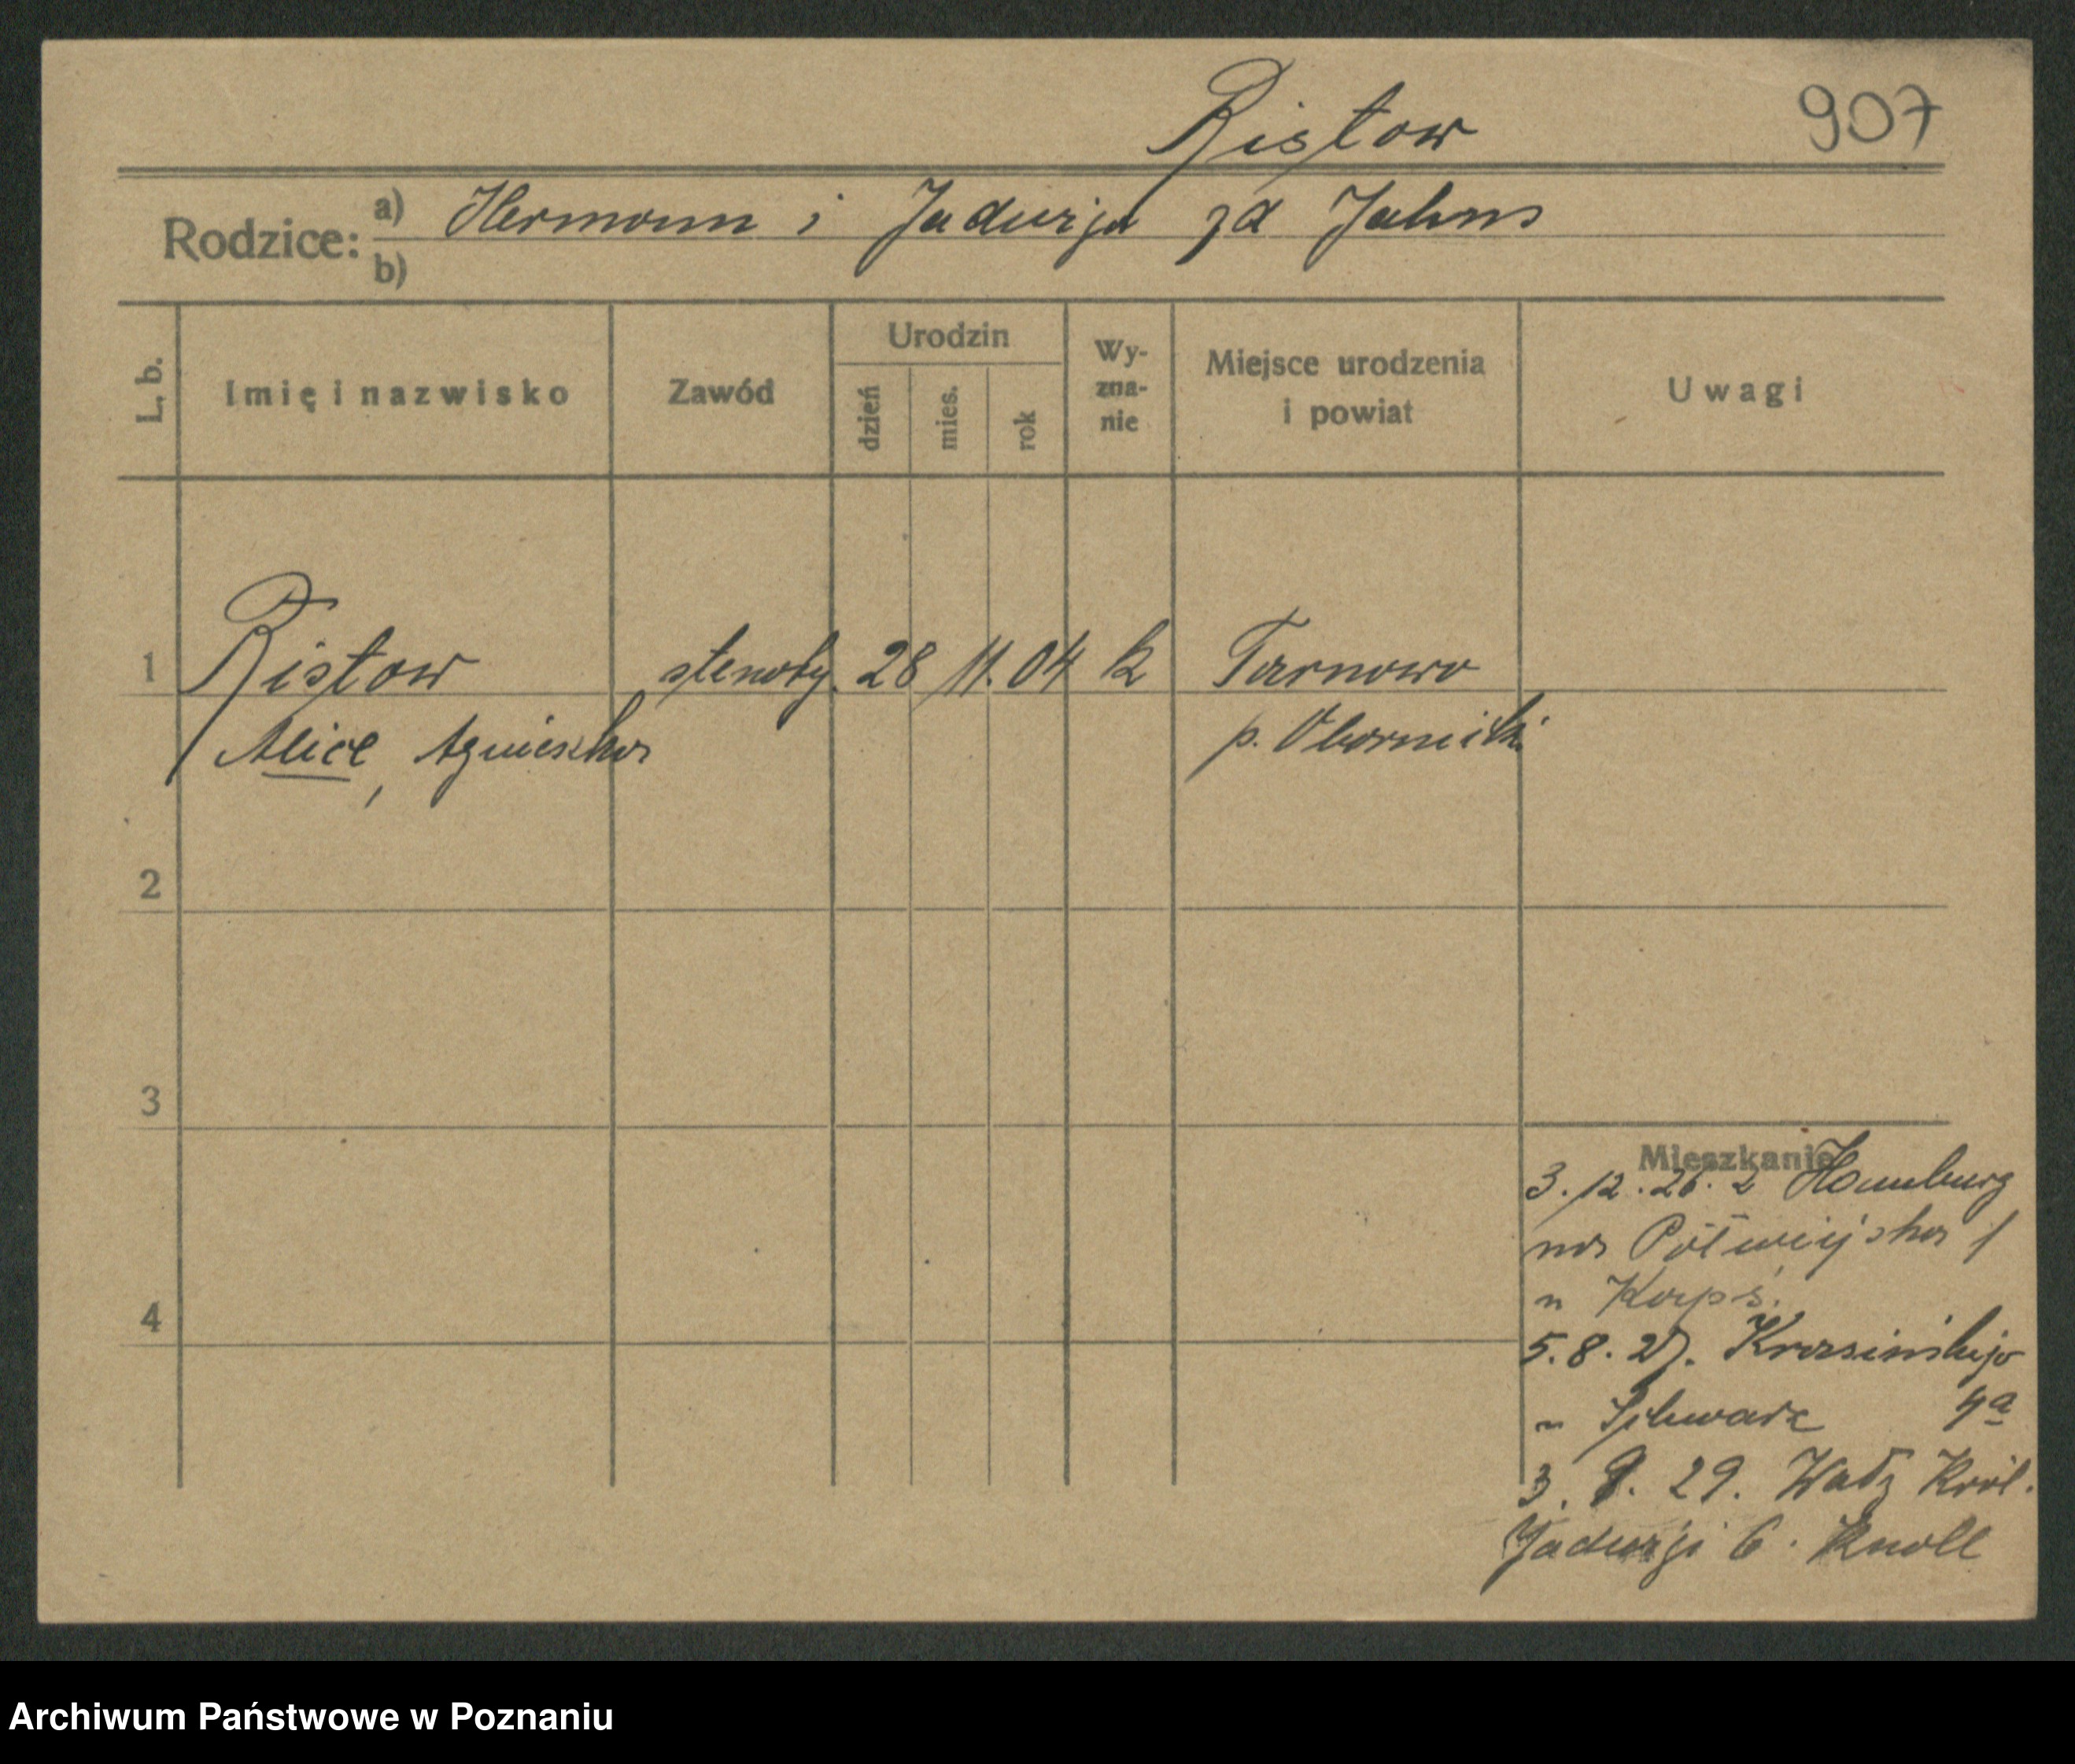 Ristow 907
Rodzice: a) Hermann i Jadwiga zd Jahns
b)
L. b. Imię i nazwisko Zawód Urodzin dzień mies. rok Wy-zna-nie Miejsce urodzenia i powiat Uwagi
1 Ristow stenoty. 28 11. 04 k Tarnowo
Alice, Agnieszka p. Oborniki
2
3
Mieszkanie
3. 12. 26. z Hamburg
na Półwiejska 1
4
5. 8. 27. Krasińskiego
u Schwarz 4a
3. 9. 29. Wały Król.
Jadwigi 6. Knoll
Archiwum Państwowe w Poznaniu